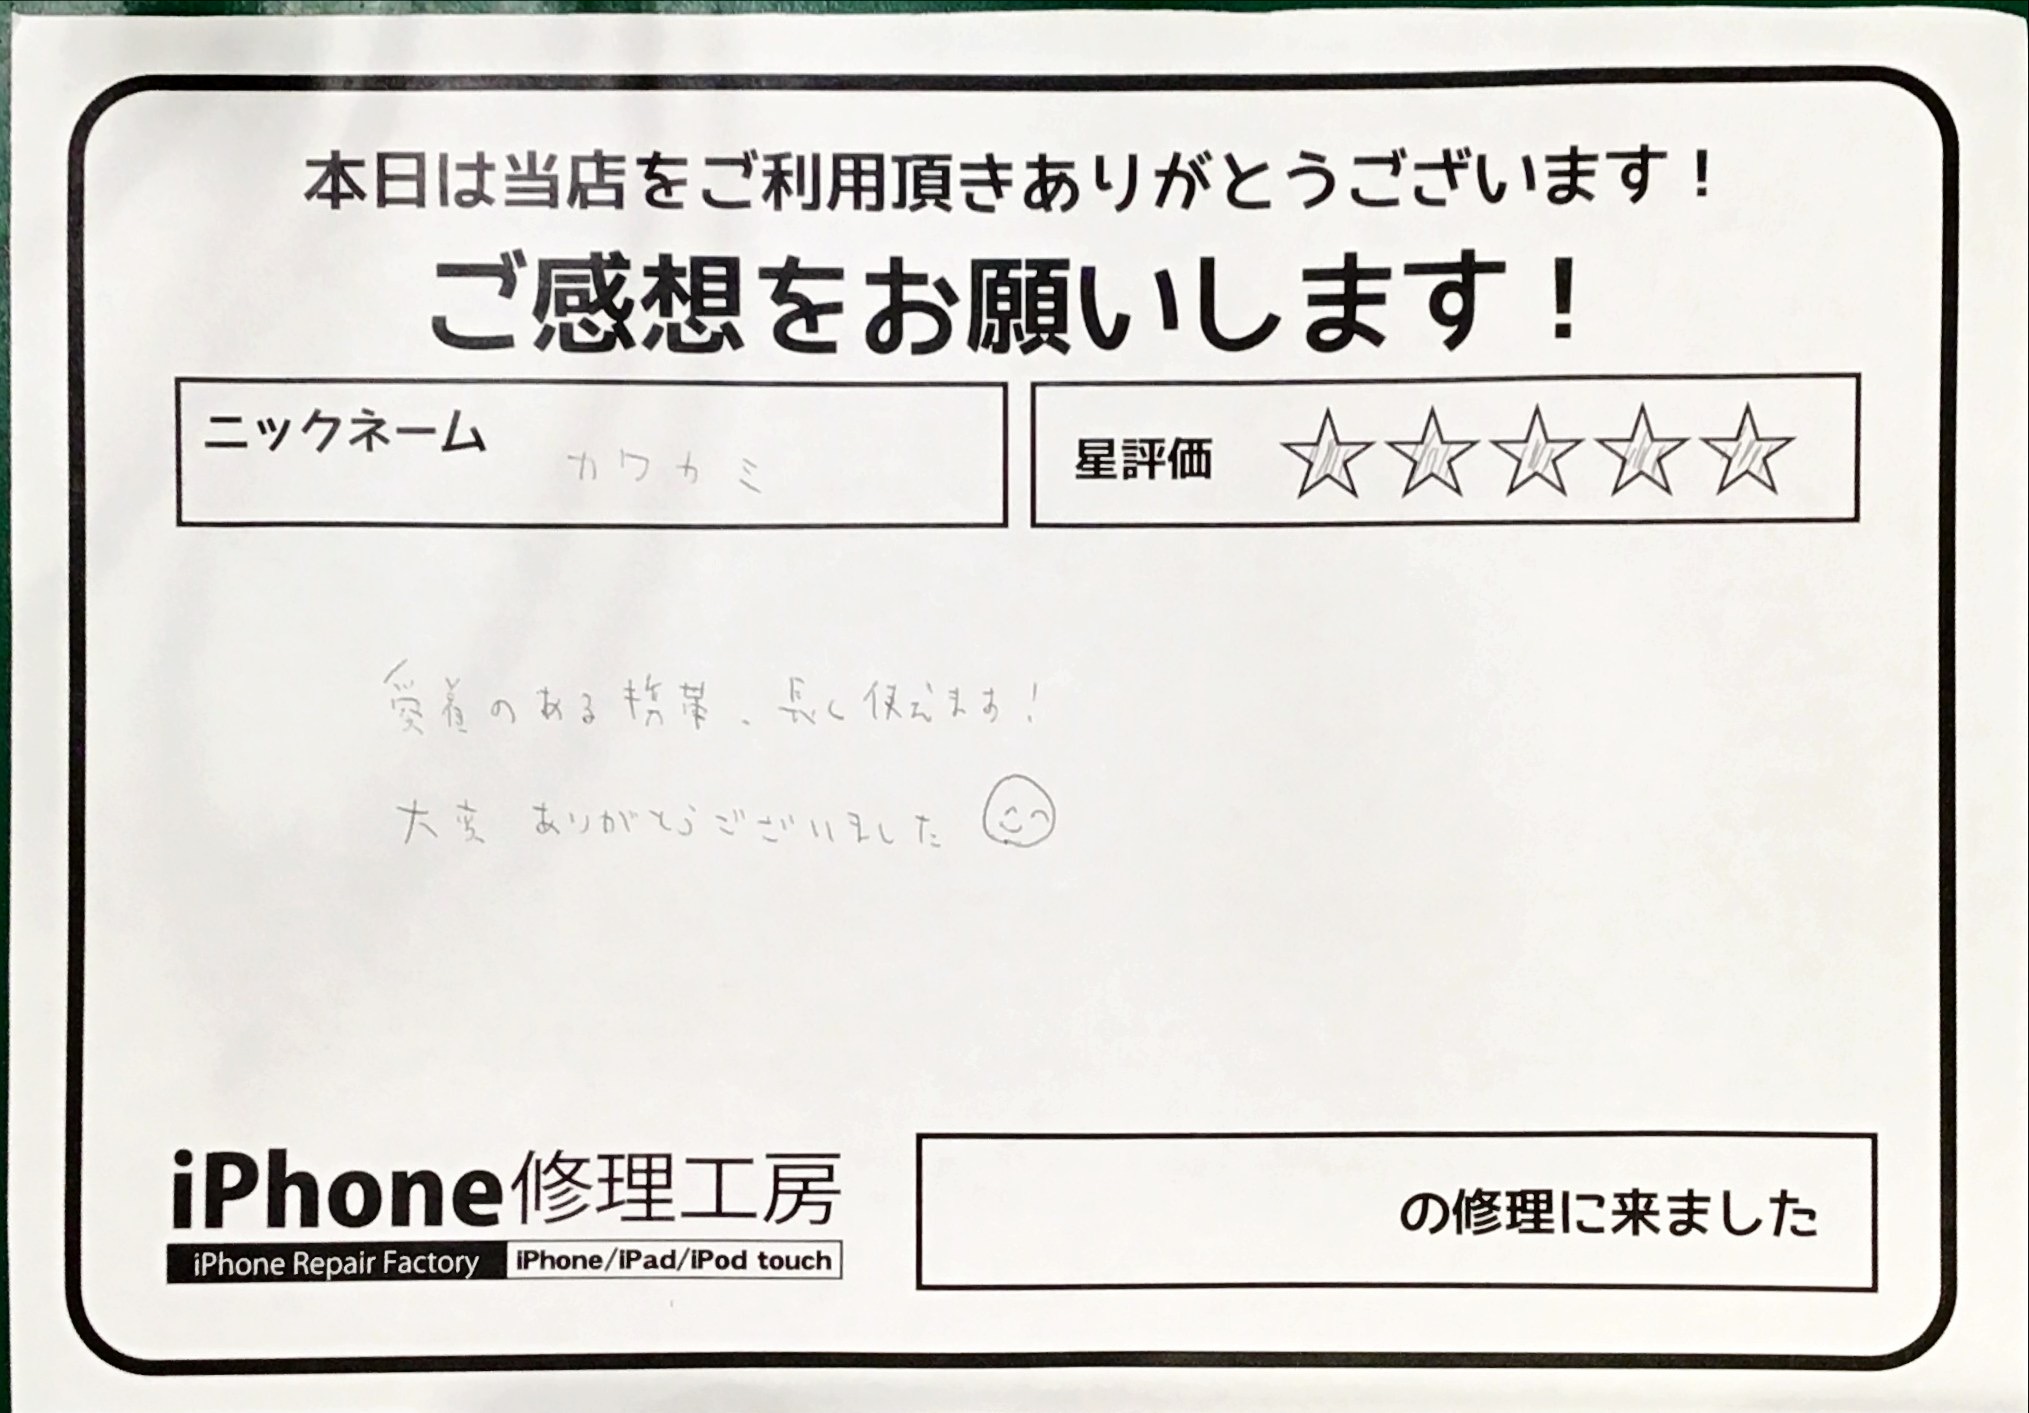 本日は当店をご利用頂きありがとうございます！
ご感想をお願いします！
ニックネーム カワカミ
星評価 ☆☆☆☆☆
愛着のある携帯、長く使えます！
大変 ありがとうございました
iPhone修理工房
iPhone Repair Factory iPhone/iPad/iPod touch
の修理に来ました